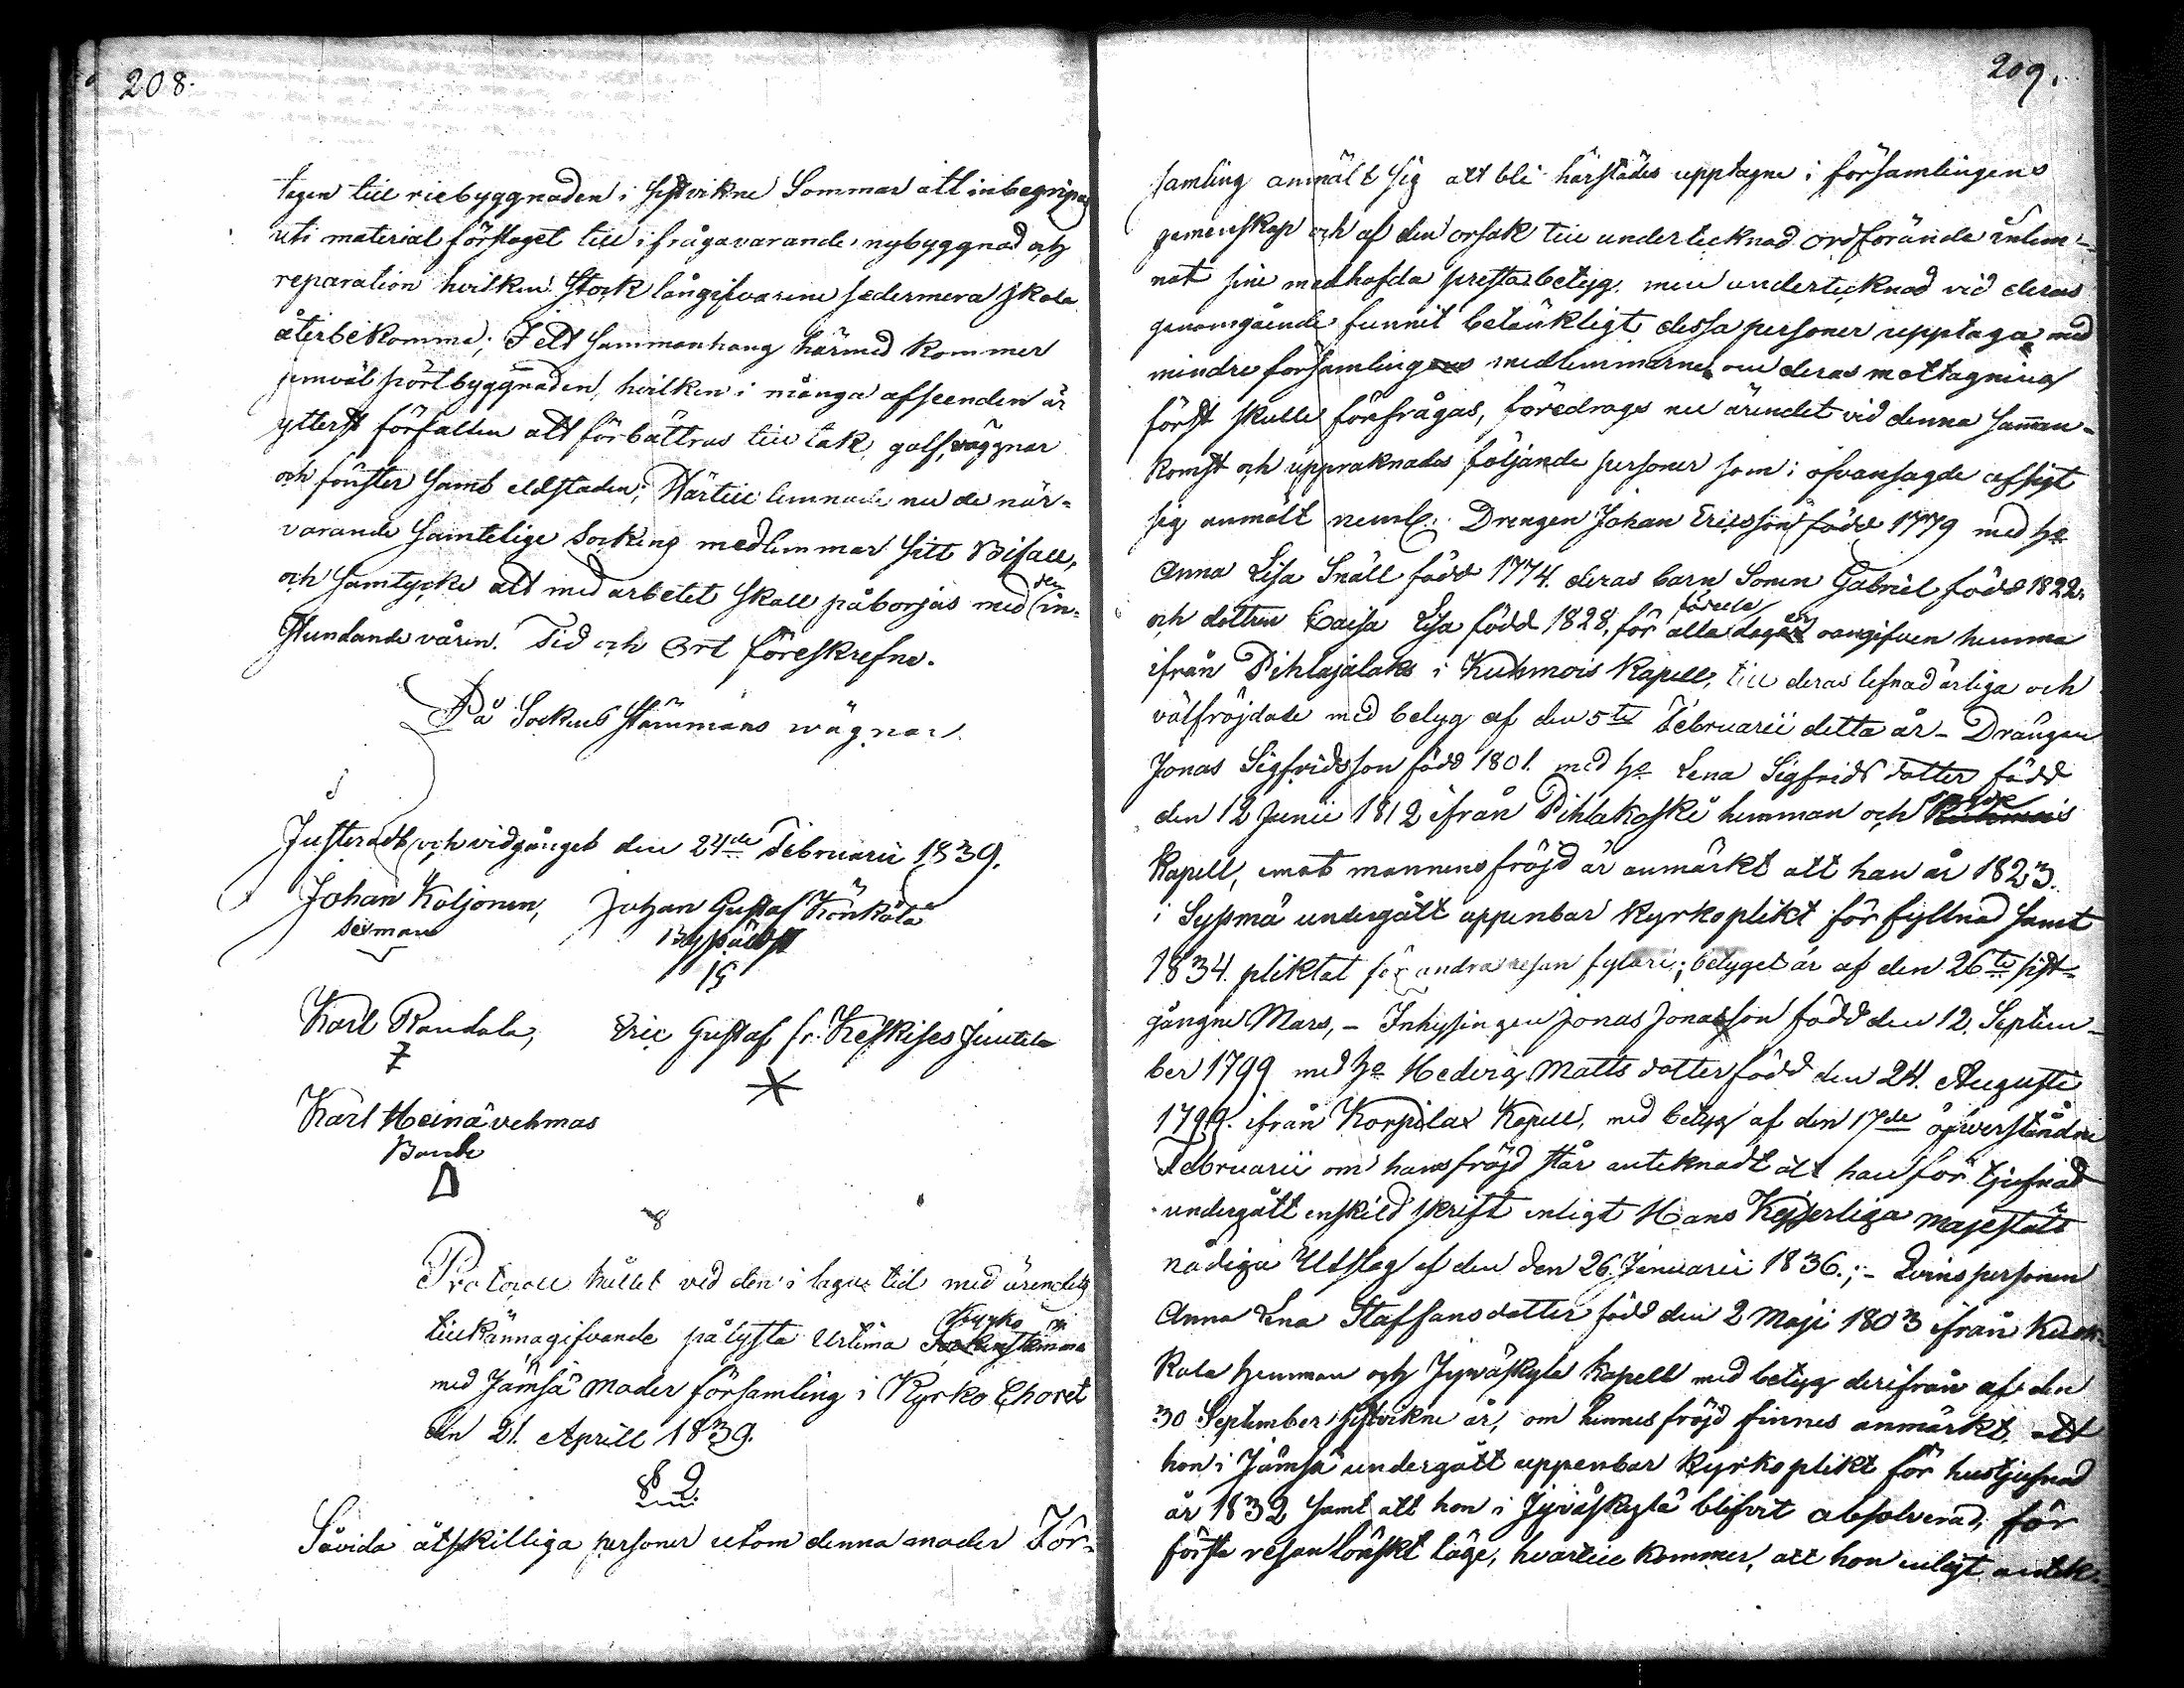 208.
tagen till riebyggnaden i sistvikne Sommar att inbegripas
uti material förslaget till ifrågavarande nybyggnad och
reparation hvilken Stock långifvarene sedermera skola
återbekomma; I ett sammanhang härmed kommer
jemväl pörtbyggnaden, hvilken i många afseenden är
ytterst förfallen att förbättras till tak, golf, väggnar
och fönster samt eldstaden; Härtill lemnade nu de när-
varande samtelige Sockens medlemmar sitt Bifall,
och samtycke att med arbetet skall påborjas med den in-
stundande våren. Tid och Ort föreskrefne.
På Sockne Stämmans wägnar
Justeradt och vidgånget den 24de Februarii 1839.
Johan Koljonen, Johan Gustaf Könkölä
sexman
Karl Randala, Eric Gustaf fr. Keskises Juutila
Karl Heinävehmas
Bonde
Protocoll hållet vid den i laga tid med ärendets
tillkännagifvande pålysta Urtima Kyrko Sockenstämma
med Jämsä Moder församling i Kyrko Choret
den 21. Aprill 1839.
§ 2
Såvida åtskilliga personer utom denna moder För-
209.
samling anmält sig att bli härstädes upptagne i församlingens
gemenskap och af den orsak till undertecknad Ordförande inlem-
nat sine medhafda prestabetyg, men undertecknad vid deras
genomgående funnit betänkligt dessa personer upptaga med
mindre församlingens medlemmarne om deras mottagning
först skulle förefrågas, föredrogs nu ärendet vid denna samman-
komst och uppraknades följande personer som i ofvansagde afsigt
sig anmält neml. Drengen Johan Ericsson född 1779 med ho
Anna Lisa Snäll född 1774. deras barn Sonen Gabriel född 1822.
och dottren Caisa Lisa född 1828, för alla födelse dagen oangifven hemma
ifrån Pihlajalaks i Kuhmois Kapell, till deras lefnad ärliga och
välfröjdade med betyg af den 5te Februarii detta år - Drängen
Jonas Sigfridsson född 1801. med ho Lena Sigfrids dotter född
den 12 Junii 1812 ifrån Pihlakoski hemman och Kuhmois
Kapell, emot mannens fröjd är anmärkt att han år 1823.
i Sysmä undergått uppenbar Kyrkoplikt för fyllnad samt
1834. pliktat för andra resan fylleri; betyget är af den 26te sist-
gångne Mars, - Inhysingen Jonas Jonasson född den 12. Septem-
ber 1799 med ho Hedvig Matts dotter född den 24. Augusti
1799. ifrån Korpilax Kapell, med betyg af den 17de öfwerståndne
Februarii om hans fröjd står anteknadt att han för tjufnad
undergått enskild skrift enligt Hans Kejserliga Majestäts
nådiga Utslag af den den 26 Januarii 1836.; - Qvinspersonen
Anna Lena Staffans dotter född den 2 Maji 1803 ifrån Kuok-
kala hemman och Jyväskylä Kapell med betyg derifrån af den
30 September sistvikne år, om hennes fröjd finnes anmärkt, att
hon i Jämsä undergått uppenbar Kyrkoplikt för hustjufnad
år 1832 samt att hon i Jyväskylä blifvit absolverad, för
första resan lönskt läge, hvartill kommer, att hon enligt antek-